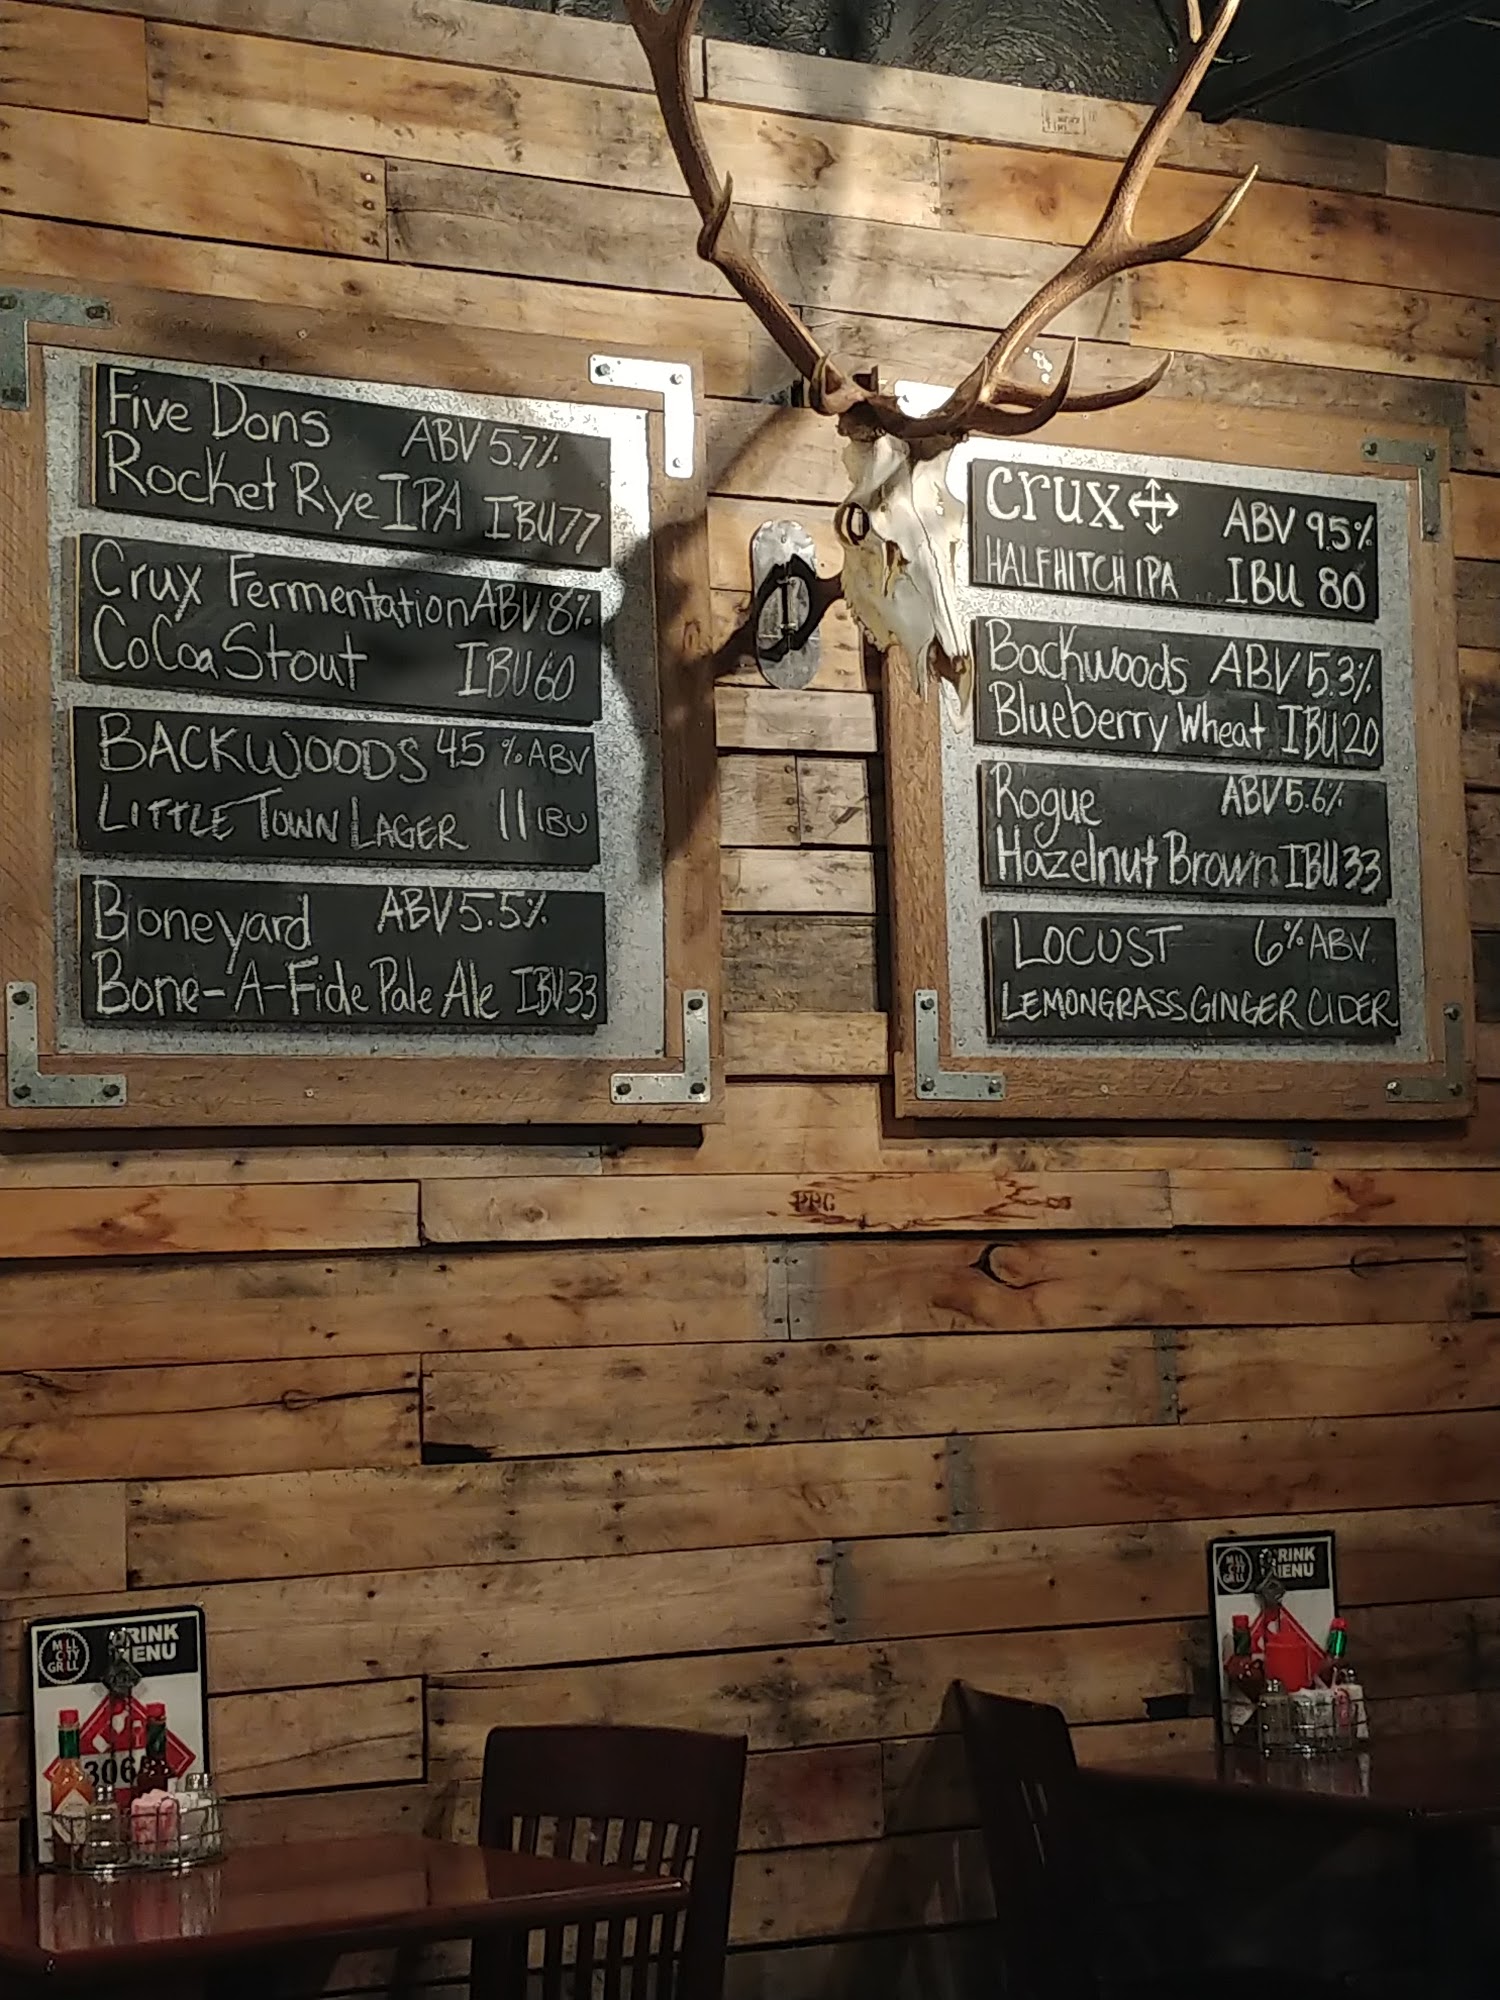 Five Dons ABV 5.7%
Rocket Rye IPA IBU 77
Crux Fermentation ABV 8%
CoCoa Stout IBU 60
BACKWOODS 4.5 % ABV
LITTLE TOWN LAGER 11 IBU
Boneyard ABV 5.5%
Bone-A-Fide Pale Ale IBU 33
CRUX ABV 9.5%
HALFHITCH IPA IBU 80
Backwoods ABV 5.3%
Blueberry Wheat IBU 20
Rogue ABV 5.6%
Hazelnut Brown IBU 33
LOCUST 6% ABV.
LEMONGRASS GINGER CIDER
PPG
MILL
CITY
GRILL
DRINK
MENU
306
MILL
CITY
GRILL
DRINK
MENU